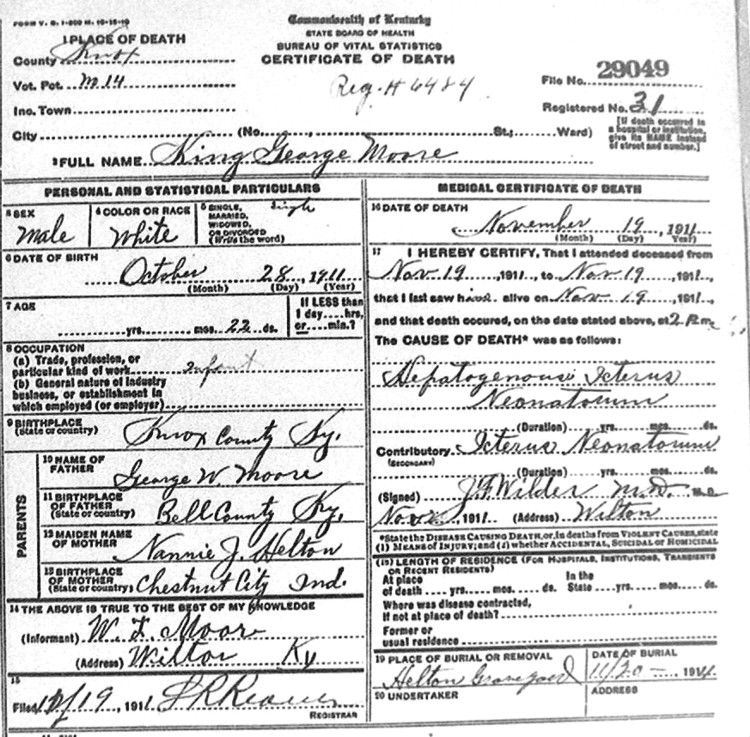 FORM V. S. 1-200 M. 10-15-10
Commonwealth of Kentucky
STATE BOARD OF HEALTH
BUREAU OF VITAL STATISTICS
CERTIFICATE OF DEATH
1 PLACE OF DEATH
County Knox
Vot. Pct. M 14
Inc. Town
City (No. , St.; Ward)
Reg. # 6484
File No. 29049
Registered No. 31
[If death occurred in a hospital or institution, give its NAME instead of street and number.]
2 FULL NAME King George Moore
PERSONAL AND STATISTICAL PARTICULARS
3 SEX
Male
4 COLOR OR RACE
White
5 SINGLE, MARRIED, WIDOWED, OR DIVORCED (Write the word) Single
6 DATE OF BIRTH
October 28, 1911
(Month) (Day) (Year)
7 AGE
yrs. mos. 22 ds.
If LESS than 1 day....hrs. or....min.?
8 OCCUPATION
(a) Trade, profession, or
particular kind of work infant
(b) General nature of industry
business, or establishment in
which employed (or employer)
9 BIRTHPLACE
(State or country) Knox County Ky.
PARENTS
10 NAME OF FATHER George W. Moore
11 BIRTHPLACE OF FATHER (State or country) Bell County Ky.
12 MAIDEN NAME OF MOTHER Nannie J. Helton
13 BIRTHPLACE OF MOTHER (State or country) Chestnut City Ind.
14 THE ABOVE IS TRUE TO THE BEST OF MY KNOWLEDGE
(Informant) W. Moor
(Address) Wilton Ky
15
Filed 19, 1911
REGISTRAR
MEDICAL CERTIFICATE OF DEATH
16 DATE OF DEATH
November 19, 1911
(Month) (Day) (Year)
17 I HEREBY CERTIFY, That I attended deceased from
Nov. 19, 1911, to Nov. 19, 1911,
that I last saw him alive on Nov. 19, 1911,
and that death occured, on the date stated above, at 2 P.m.
The CAUSE OF DEATH* was as follows:
Hepatogenous Icterus
Neonatorum
(Duration) yrs. mos. ds.
Contributory Icterus Neonatorum
(SECONDARY)
(Duration) yrs. mos. ds.
(Signed) J F Wilder M.D. M.D.
Nov 1911 (Address) Wilton
*State the DISEASE CAUSING DEATH, or, in deaths from VIOLENT CAUSES, state
(1) MEANS OF INJURY; and (2) whether ACCIDENTAL, SUICIDAL or HOMICIDAL
(18) LENGTH OF RESIDENCE (FOR HOSPITALS, INSTITUTIONS, TRANSIENTS
OR RECENT RESIDENTS)
At place of death yrs. mos. ds. In the State yrs. mos. ds.
Where was disease contracted,
if not at place of death?
Former or
usual residence
19 PLACE OF BURIAL OR REMOVAL
Helton Graveyard
DATE OF BURIAL
11/20 1911
20 UNDERTAKER
ADDRESS